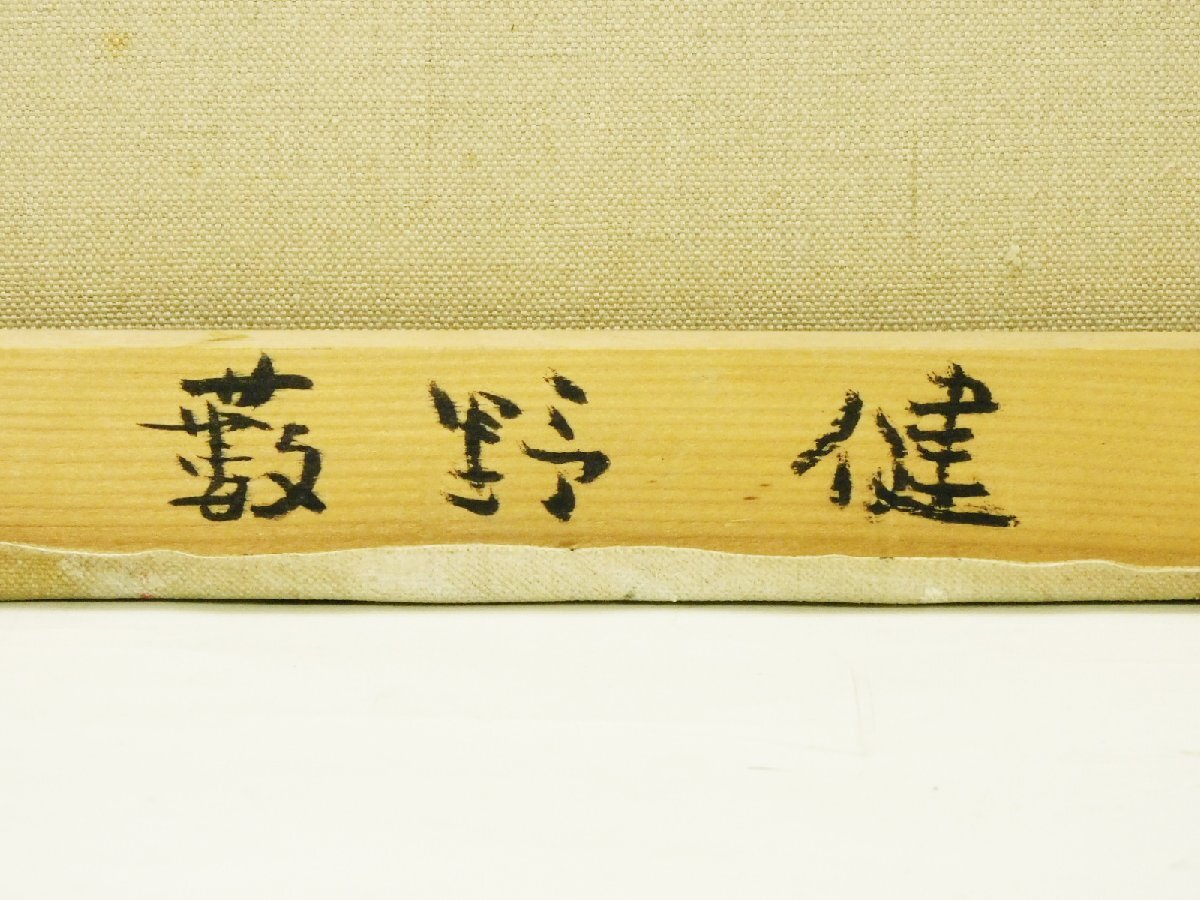 藪野健